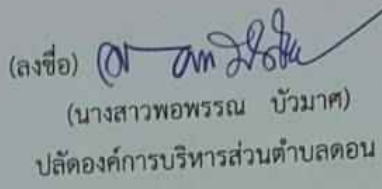 (ลงชื่อ)
(นางสาวพอพรรณ บัวมาศ)
ปลัดองค์การบริหารส่วนตำบลดอน